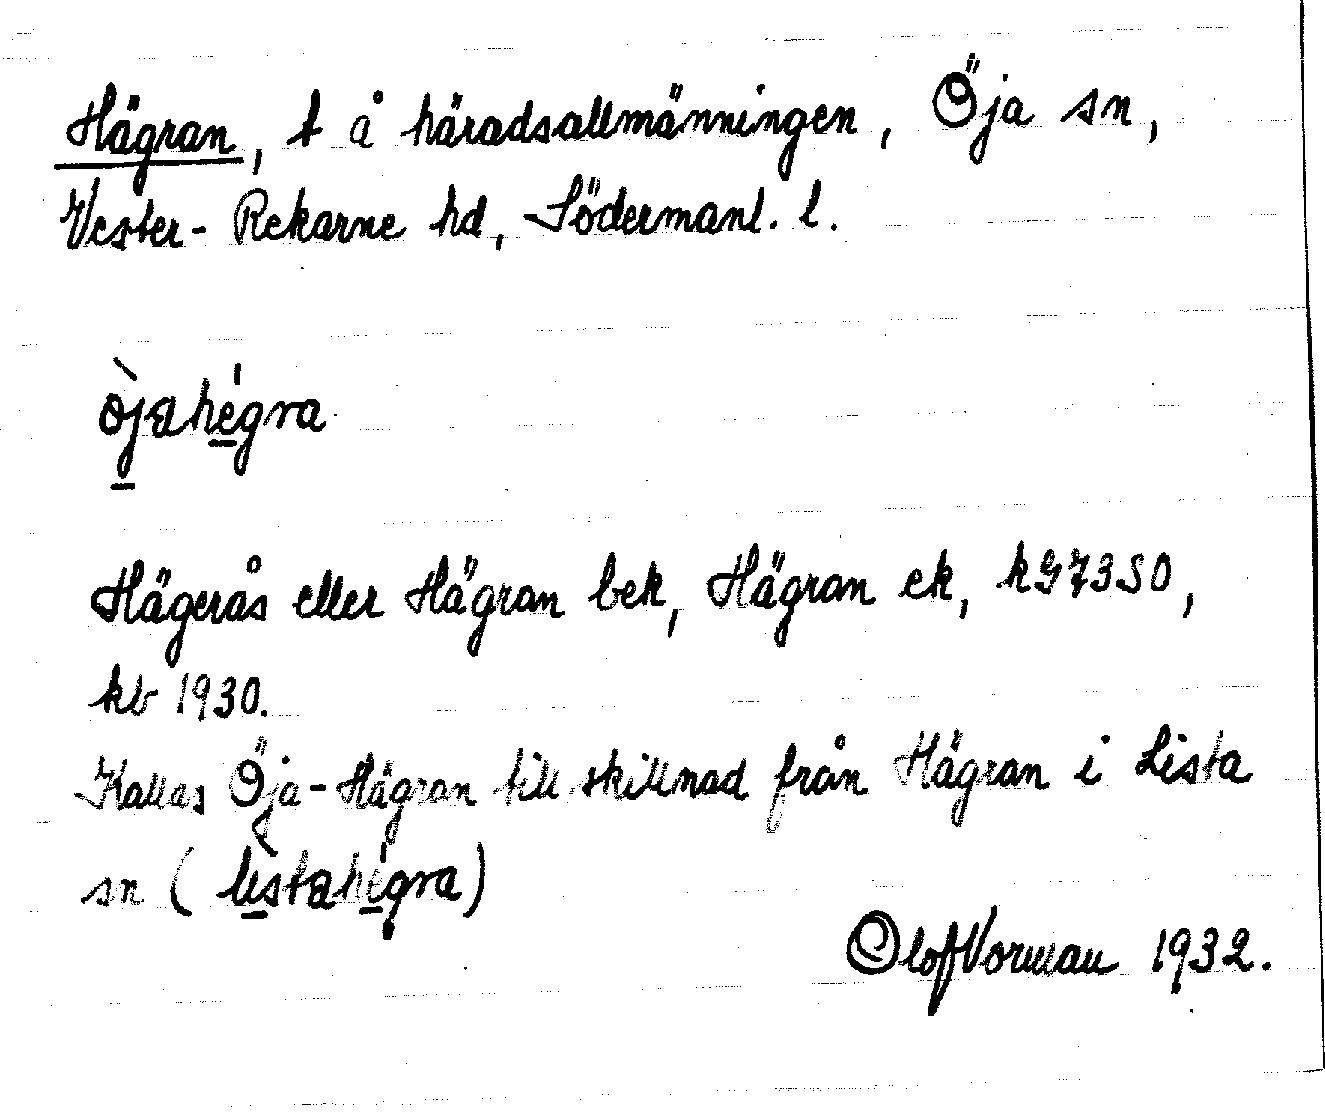 Hägran, t å häradsallmänningen, Öja sn,
Vester-Rekarne hd, Södermanl. l.
ö̀jahégra
Hägerås eller Hägran bek, Hägran ek, kG73SO,
kb 1930.
Kallas Öja-Hägran till skillnad från Hägran i Lista
sn (lìstahégra)
Olof Vorman 1932.